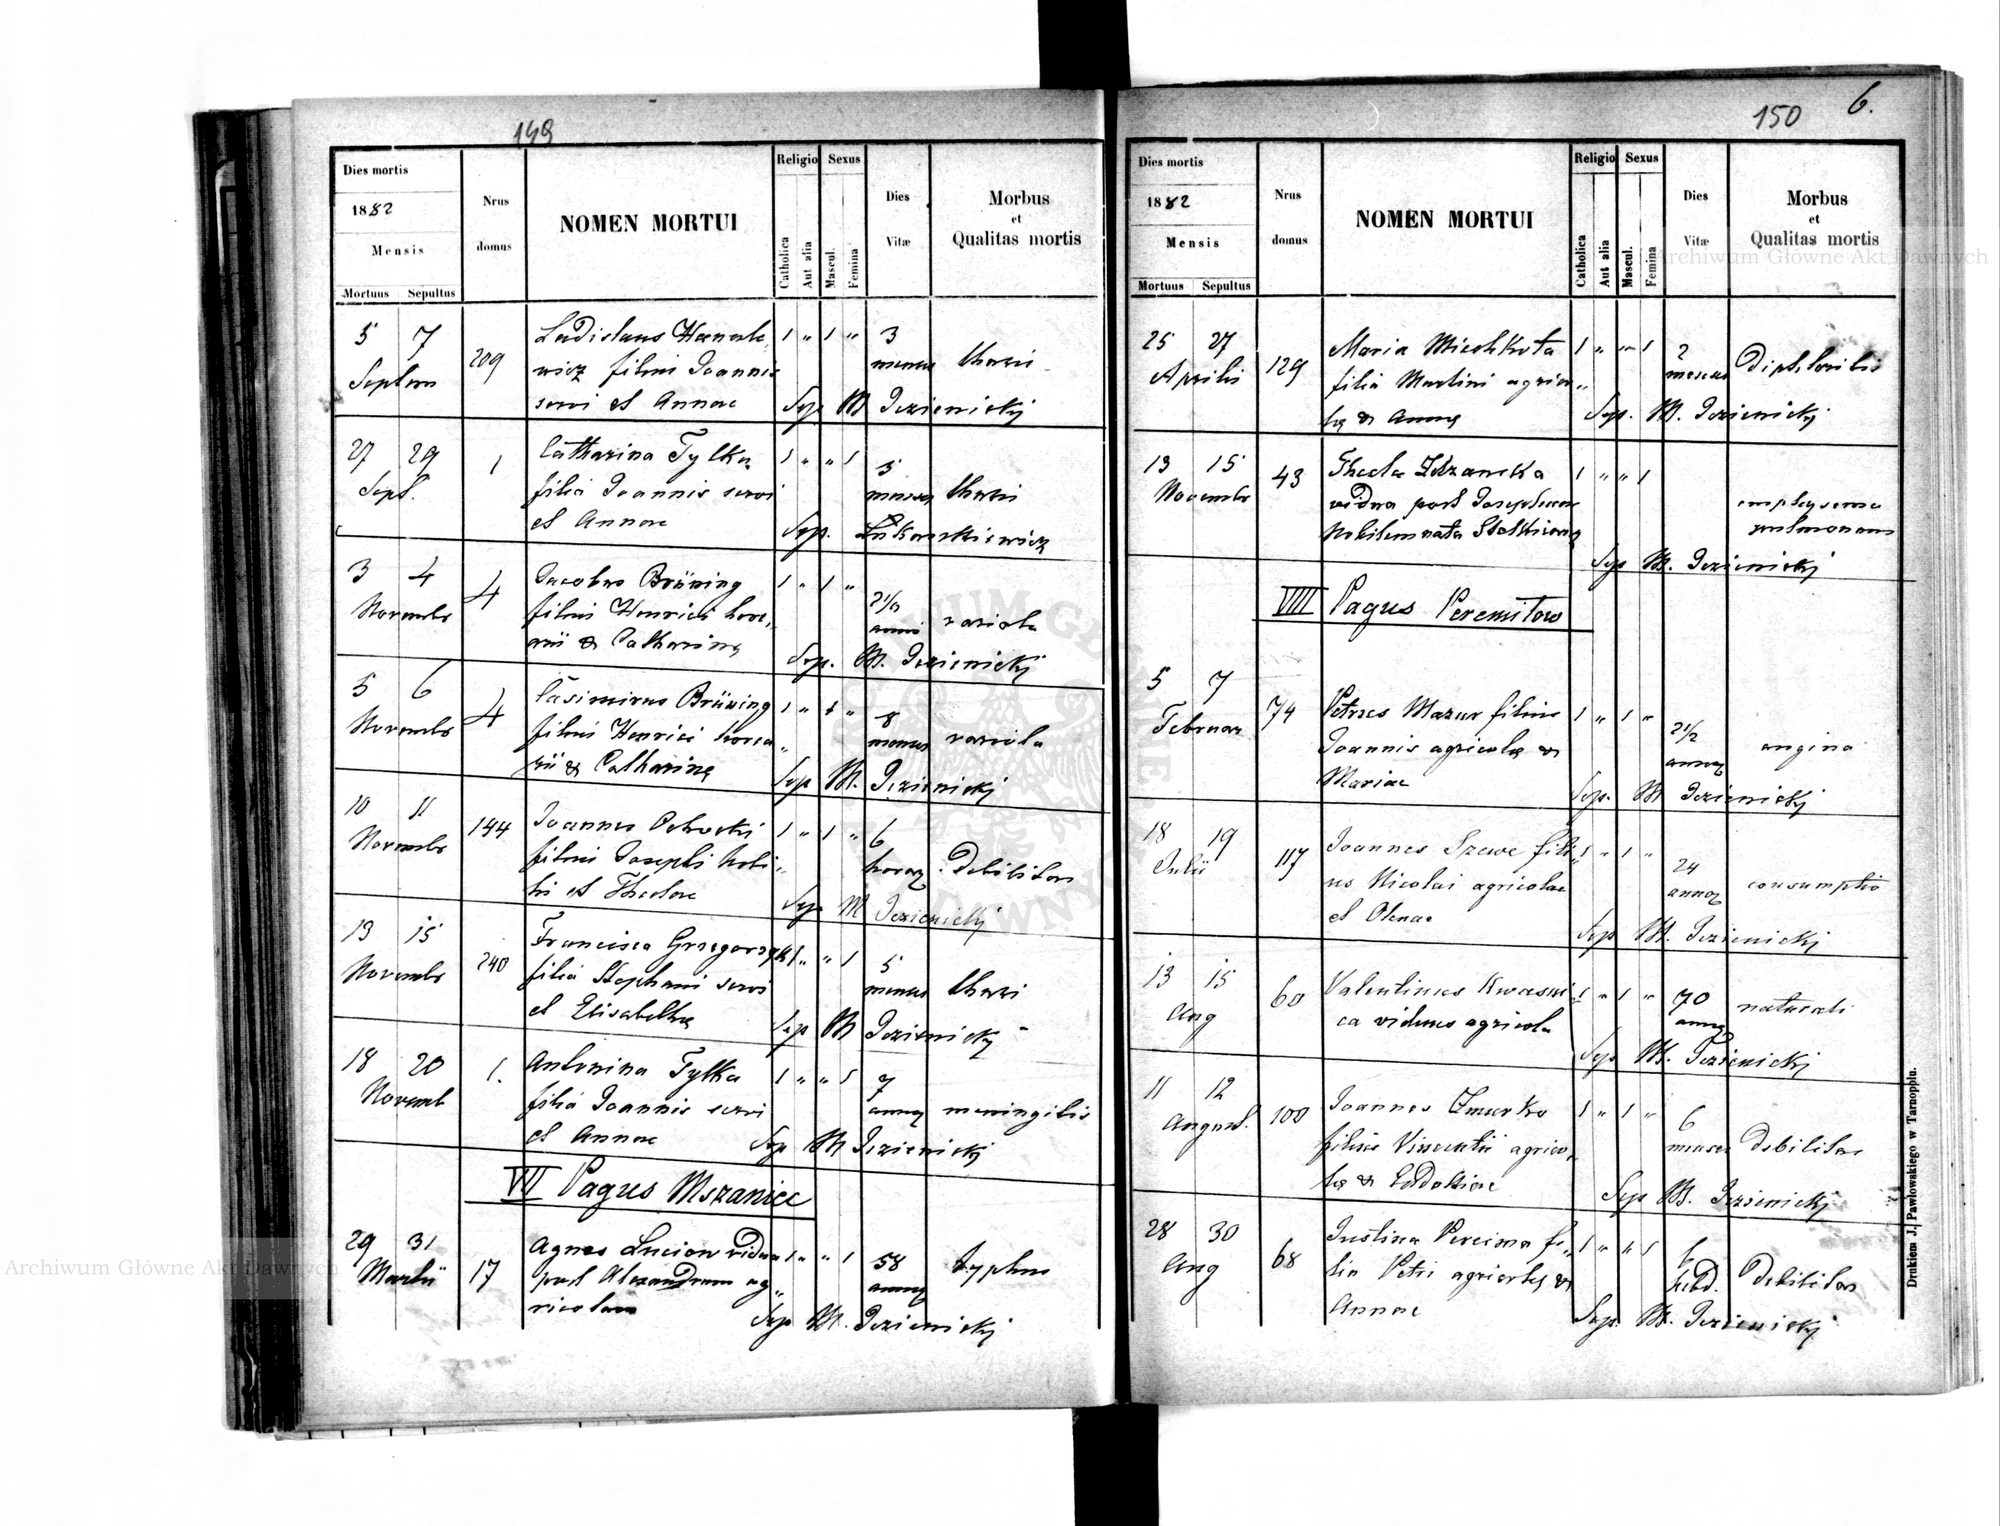 149
Dies mortis
1882
Mensis
Mortuus Sepultus
Nrus
domus
NOMEN MORTUI
Religio
Catholica
Aut alia
Sexus
Mascul.
Femina
Dies
Vitæ
Morbus
et
Qualitas mortis
5 7 209 Ladislaus 1 " 1 " 3
filius Joannis menses
servi et Annae Sep M Jezienicki
27 29 1 Catharina Tylka 1 " " 1 5
Sept. filia Joannis servi menses
et Annae Sep.
3 4 4 Jacobus Brüning 1 " 1 " 2 1/2
Novembr filius Henrici variola
& Catharinę Sep. M. Jezienicki
5 6 4 Casimirus Brüning 1 " 1 " 8
Novembr filius Henrici menses variola
& Catharinę Sep M. Jezienicki
10 11 144 Joannes 1 " 1 " 6
Novembr filius Josephi nobi- horas debilitas
lis et Theclae Sep M Jezienicki
13 15 240 Francisca 1 " " 1 5
Novembr filia Stephani servi menses
et Elisabethę Sep M Jezienicki
18 20 1. Antonina Tylka 1 " " 1 7
Novemb filia Joannis servi meningitis
et Annae Sep M Jezienicki
VII Pagus Mszaniec
29 31 17 Agnes Lucion vidua 1 " " 1 58
Martii post Alexandrum ag- typhus
ricolam Sep M. Jezienicki
150 6.
Dies mortis
1882
Mensis
Mortuus Sepultus
Nrus
domus
NOMEN MORTUI
Religio
Catholica
Aut alia
Sexus
Mascul.
Femina
Dies
Vitæ
Morbus
et
Qualitas mortis
25 27 129 Maria 1 " " 1 2
Aprilis filia Martini agrico- menses diphtheritis
lę & Annę Sep. M. Jezienicki
13 15 43 Thecla 1 " " 1
Novembr vidua post Josephum emphysema
nobilem nata pulmonum
Sep M. Jezienicki
VIII Pagus Peremilow
5 7 74 Petrus Mazur filius 1 " 1 " 2 1/2
Februar Joannis agricolę & angina
Mariae Sep. M Jezienicki
18 19 117 Joannes Szewc fili- 1 " 1 " 24
Julii us Nicolai agricolae consumptio
et Olenae Sep M. Jezienicki
13 15 60 Valentinus 1 " 1 " 70
Aug viduus agricola naturali
Sep M. Jezienicki
11 12 100 Joannes Żmurko 1 " 1 " 6
August. filius Vincentii agrico- menses debilitas
lę & Eudokiae Sep M. Jezienicki
28 30 68 Justina Pereima fi- 1 " " 1 6
Aug lia Petri agricolę & hebd. debilitas
Annae Sep. M. Jezienicki
Drukiem J. Pawłowskiego w Tarnopolu.
Archiwum Główne Akt Dawnych
Archiwum Główne Akt Dawnych